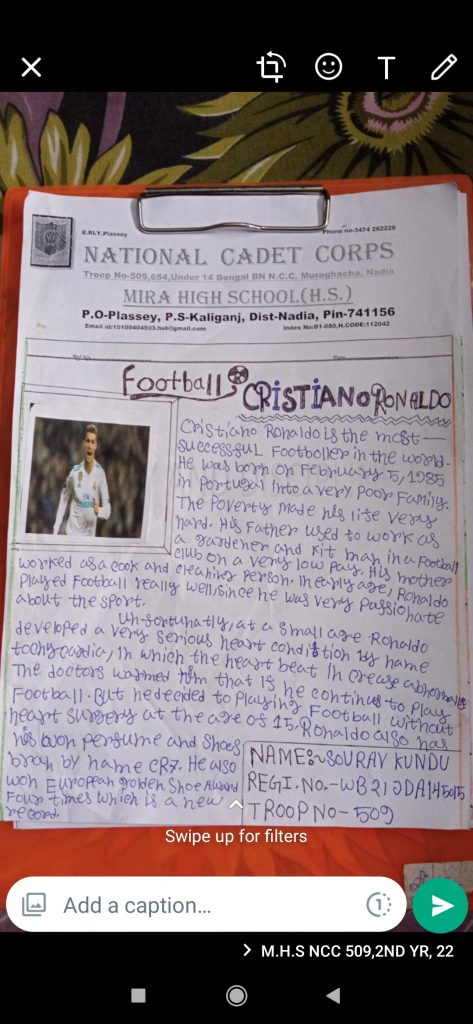 T
E.RLY,Plassey
Phone no-3474 262229
NATIONAL CADET CORPS
Troop No-509,654,Under 14 Bengal BN N.C.C. Muraghacha, Nadia
MIRA HIGH SCHOOL(H.S.)
P.O-Plassey, P.S-Kaliganj, Dist-Nadia, Pin-741156
Email id:15100404503.hsb@gmail.com
Index No:01-080,H.CODE:112042
Football
CRISTIANO RONALDO
Cristiano Ronaldo is the most
successful Footboller in the world.
He was born on February 5, 1985
in Portugal into a very poor Family.
The Poverty made his life very
hard. His Father used to work as
a gardener and kit man in a Football
club on a very low pay. His mother
worked as a cook and cleaning person. In early age, Ronaldo
Played Football really well, since he was very passionate
about the sport.
Un-fortunatly, at a small age Ronaldo
developed a very serious heart condition by name
The doctors warned him that if he continue to play
Football. But he decided to playing Football without
heart surgery at the age of 15. Ronaldo also has
his own perfume and shoes
bran by name CR7. He also
won European golden Shoe Award
Four times which is a new
record.
NAME:- SOURAV KUNDU
REGI. NO.-WB21JDA145015
TROOP NO- 509
Swipe up for filters
Add a caption...
1
M.H.S NCC 509,2ND YR, 22